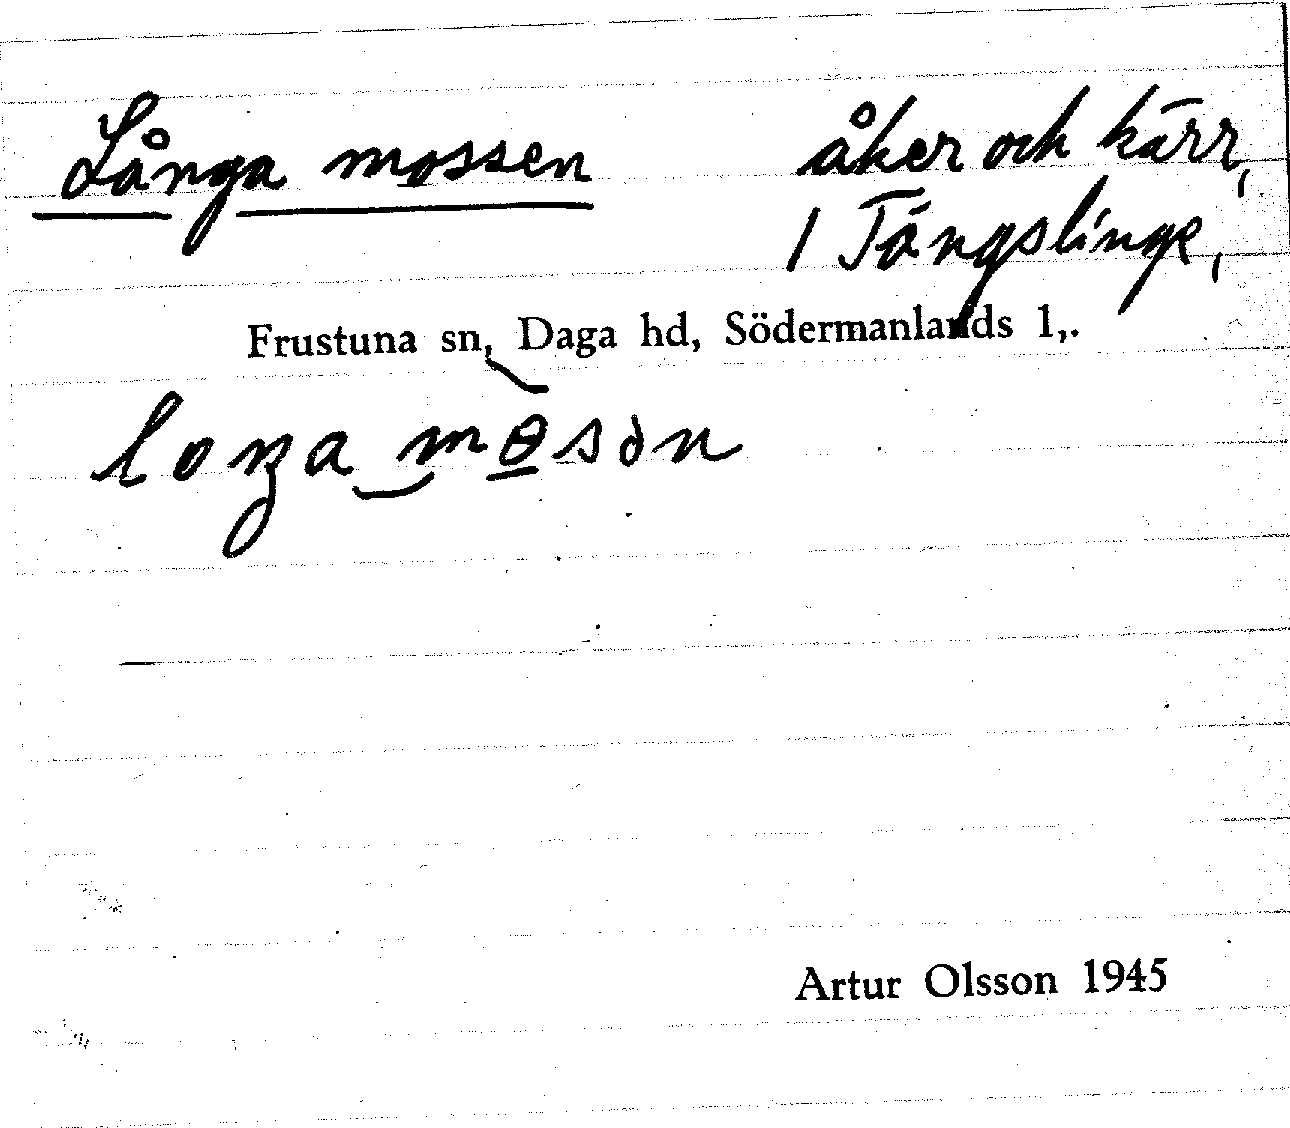 Långa mossen åker och kärr,
1 Tängslinge,
Frustuna sn, Daga hd, Södermanlands l,.
loŋa mɵsən
Artur Olsson 1945